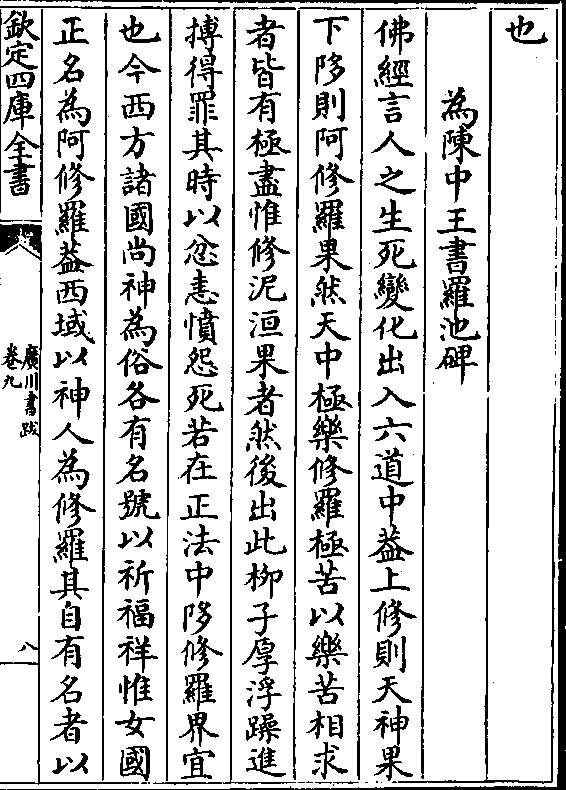 也
為陳中王書羅池碑
佛經言人之生死變化出入六道中葢上修則天神果
下陊則阿修羅果然天中極樂修羅極苦以樂苦相求
者皆有極盡惟修泥洹果者然後出此柳子厚浮躁進
搏得罪其時以忿恚憤怨死若在正法中陊修羅界宜
也今西方諸國尚神為俗各有名號以祈福祥惟女國
正名為阿修羅葢西域以神人為修羅其自有名者以
欽定四庫全書
廣川書跋
卷九
八